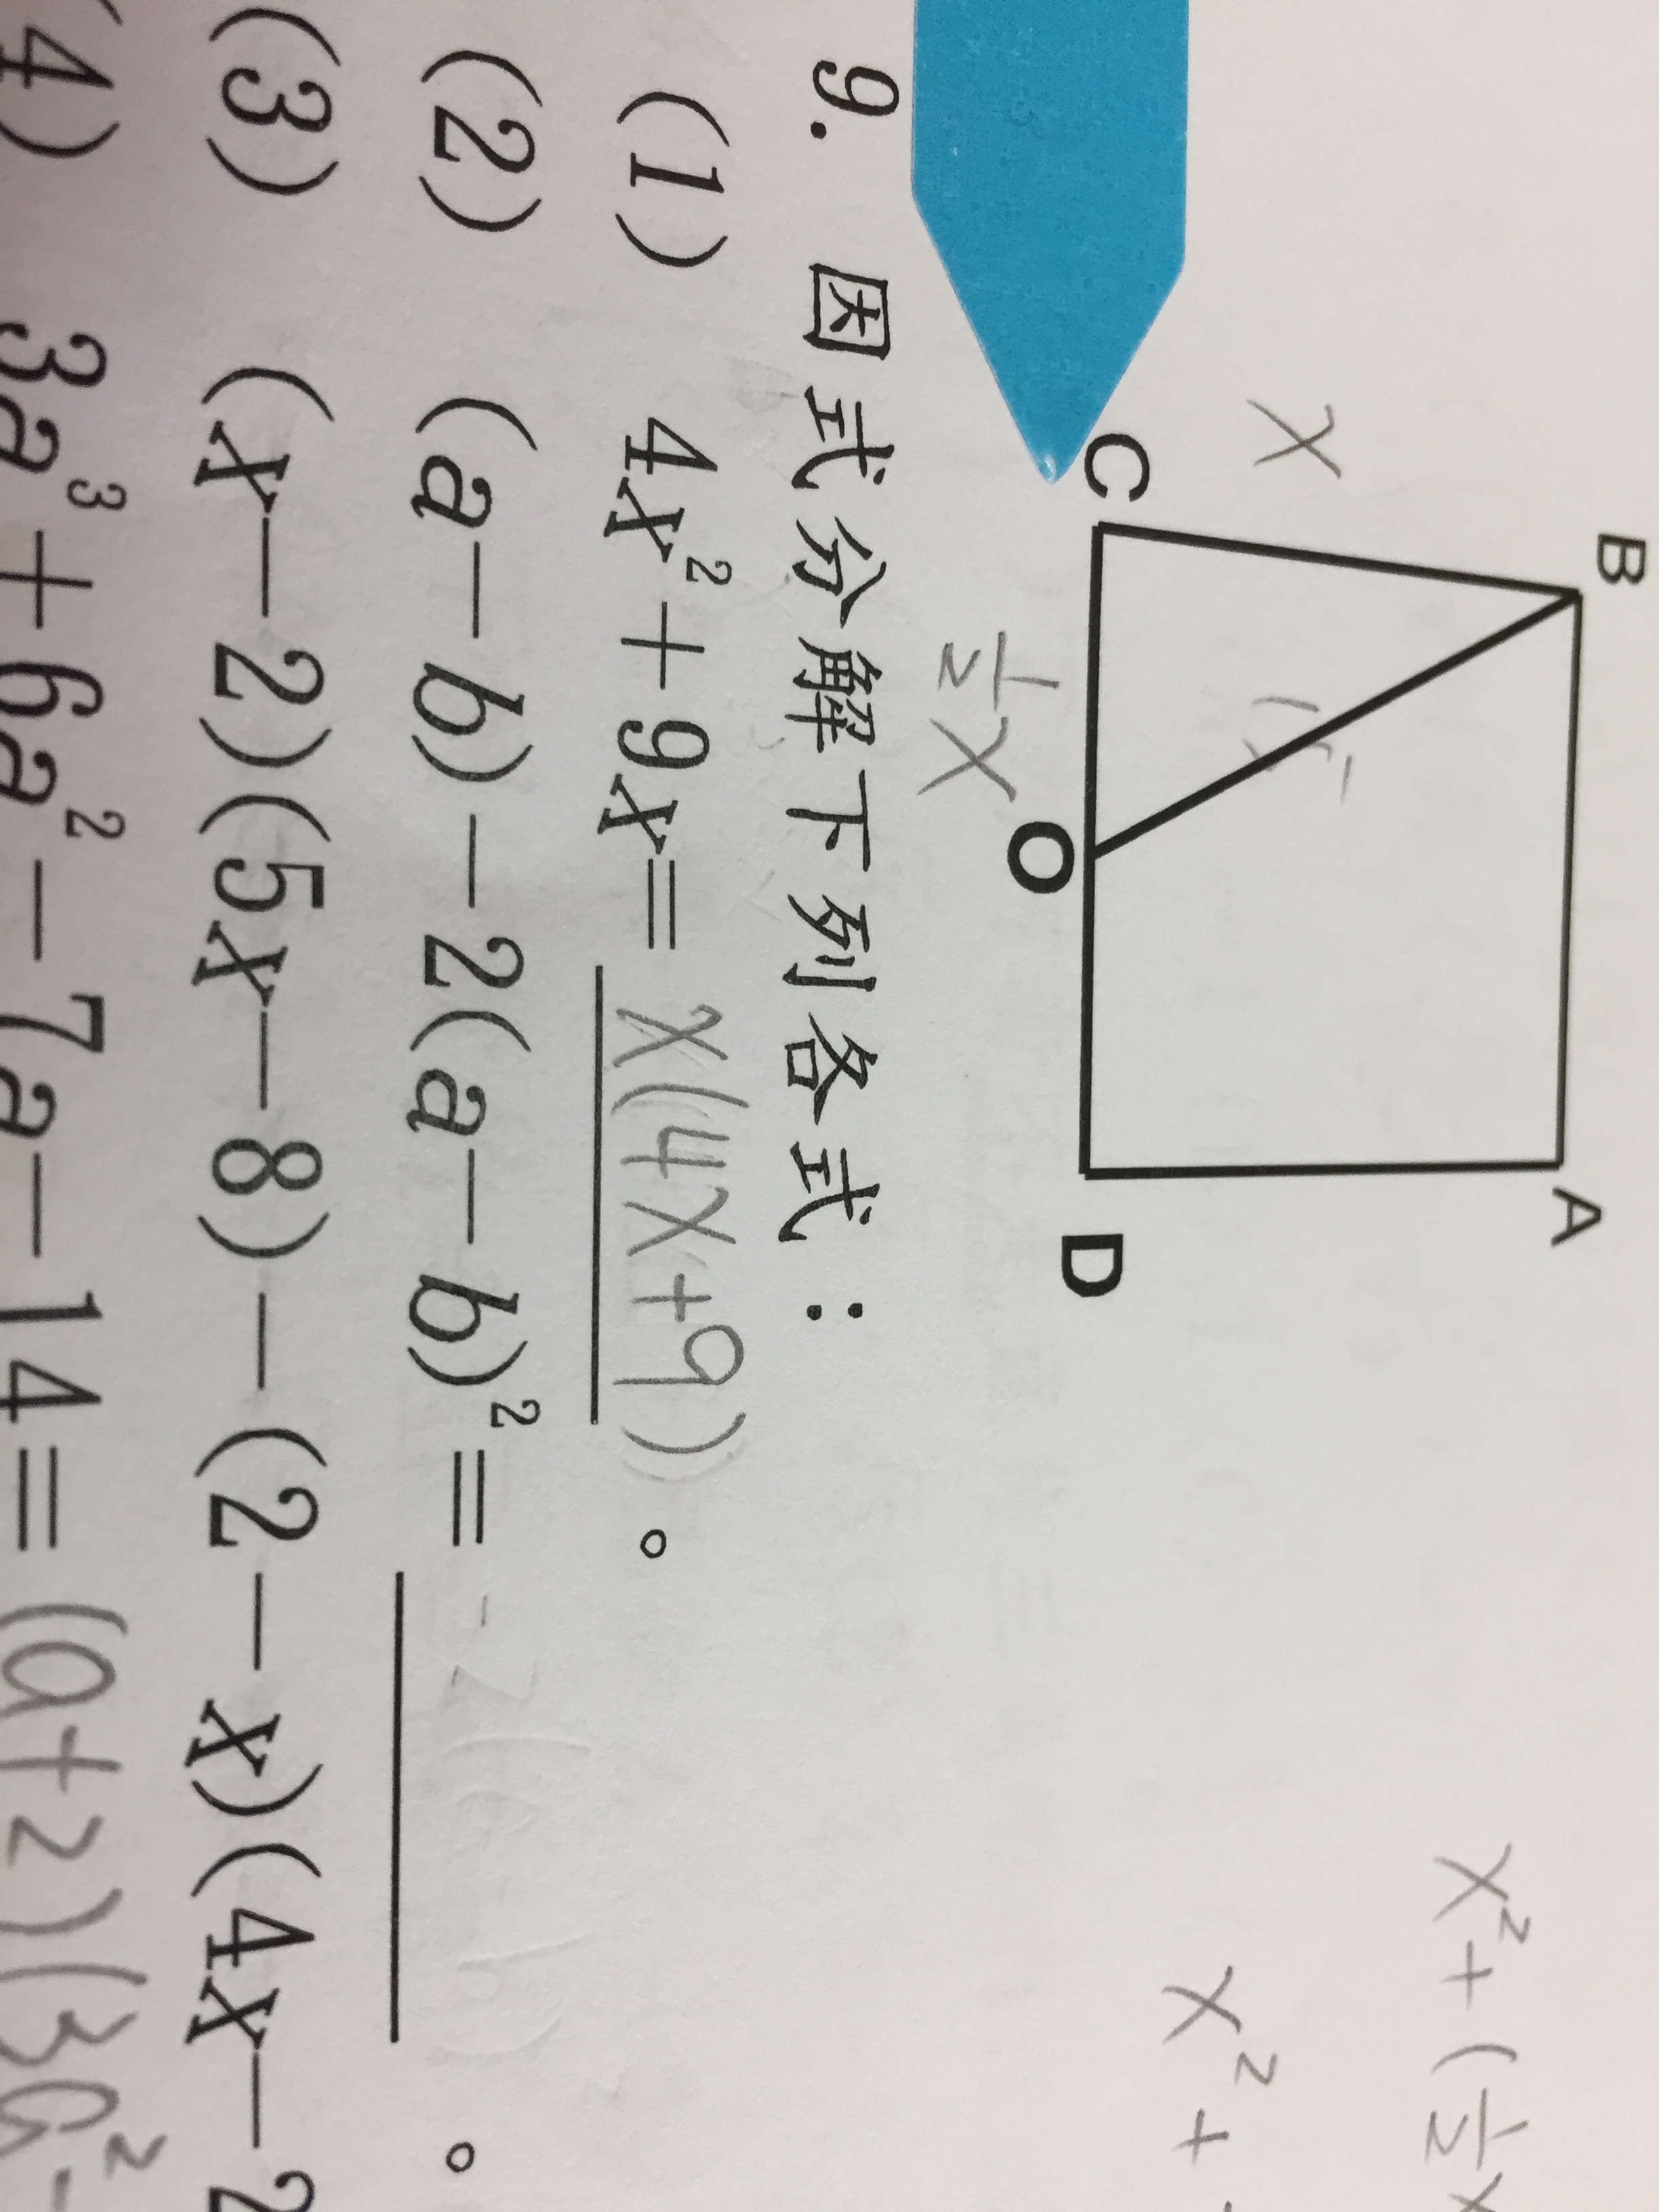 B A
X
C O D
½X
X²+(½X
X²+
9. 因式分解下列各式：
(1) 4x²+9x= X(4X+9)。
(2) (a-b)-2(a-b)²= 。
(3) (x-2)(5x-8)-(2-x)(4x-2
(4) 3a³+6a²-7a-14= (a+2)(3a²-